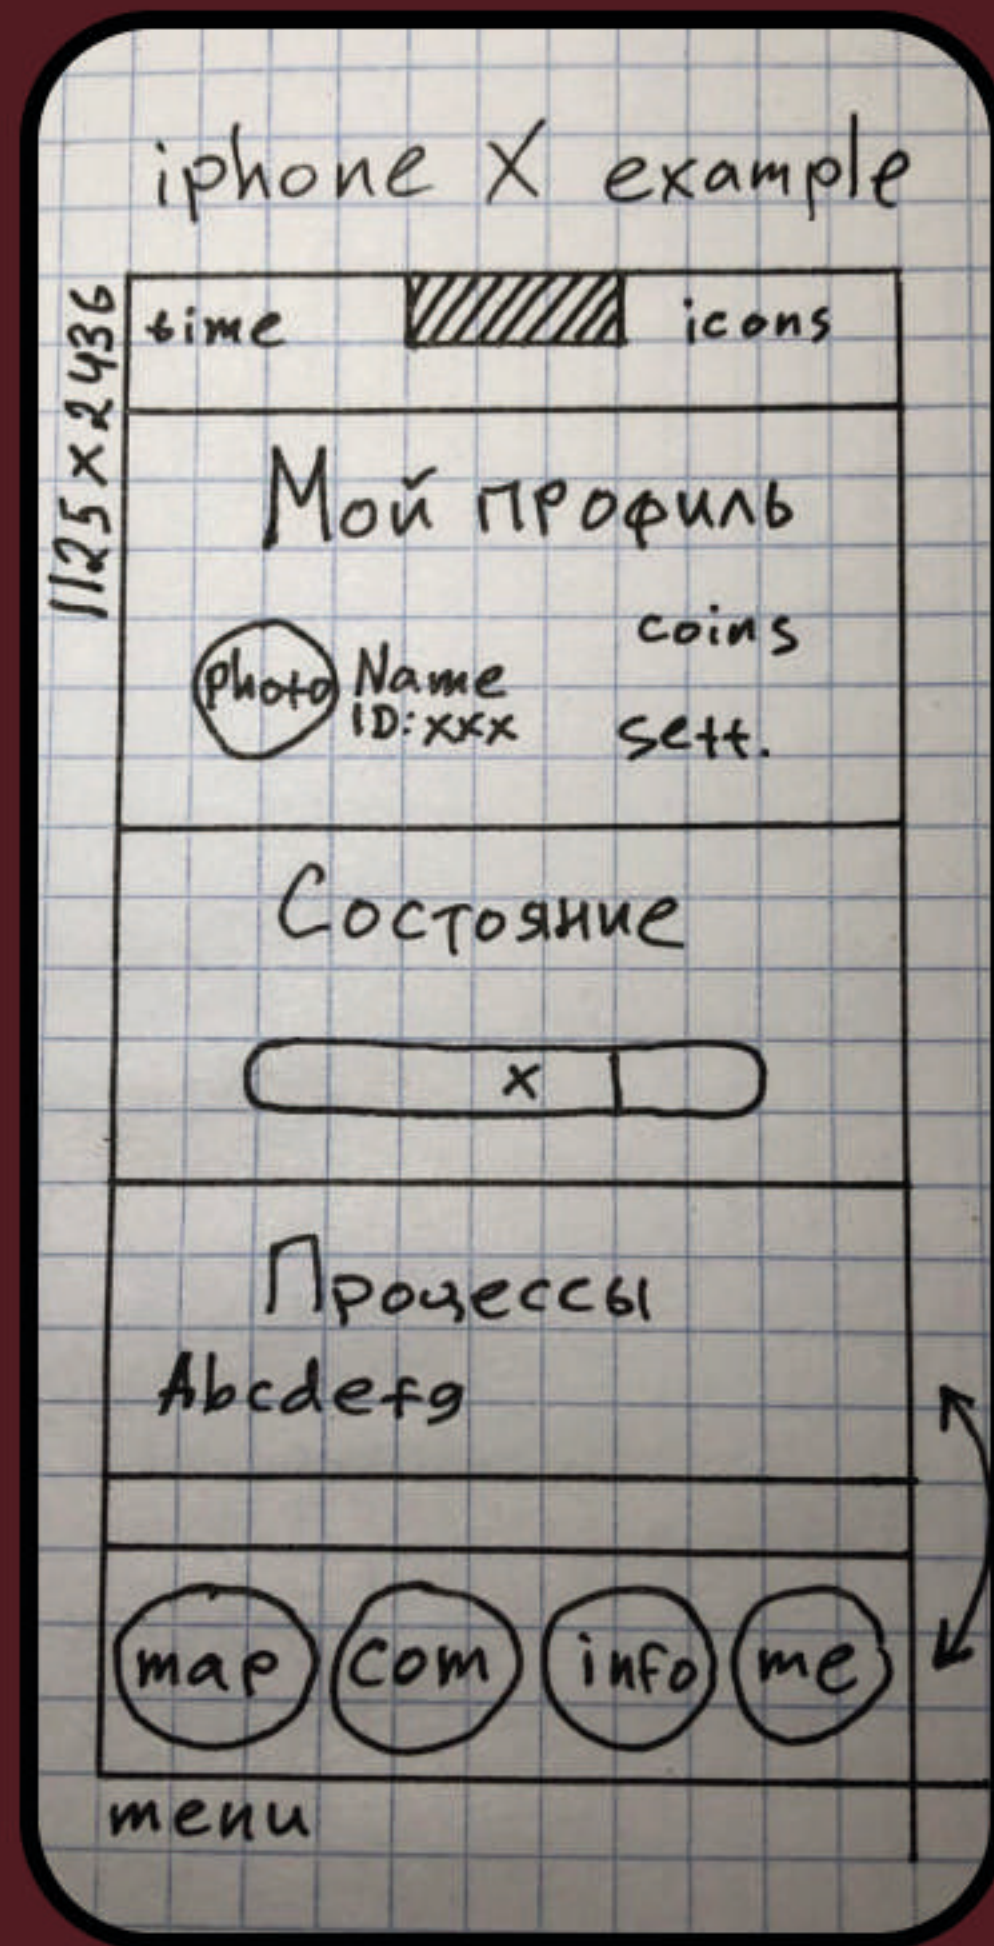 iphone X example
1125 x 2436
time icons
Мой профиль
coins
photo Name
ID: xxx sett.
Состояние
x
Процессы
Abcdefg
map com info me
menu